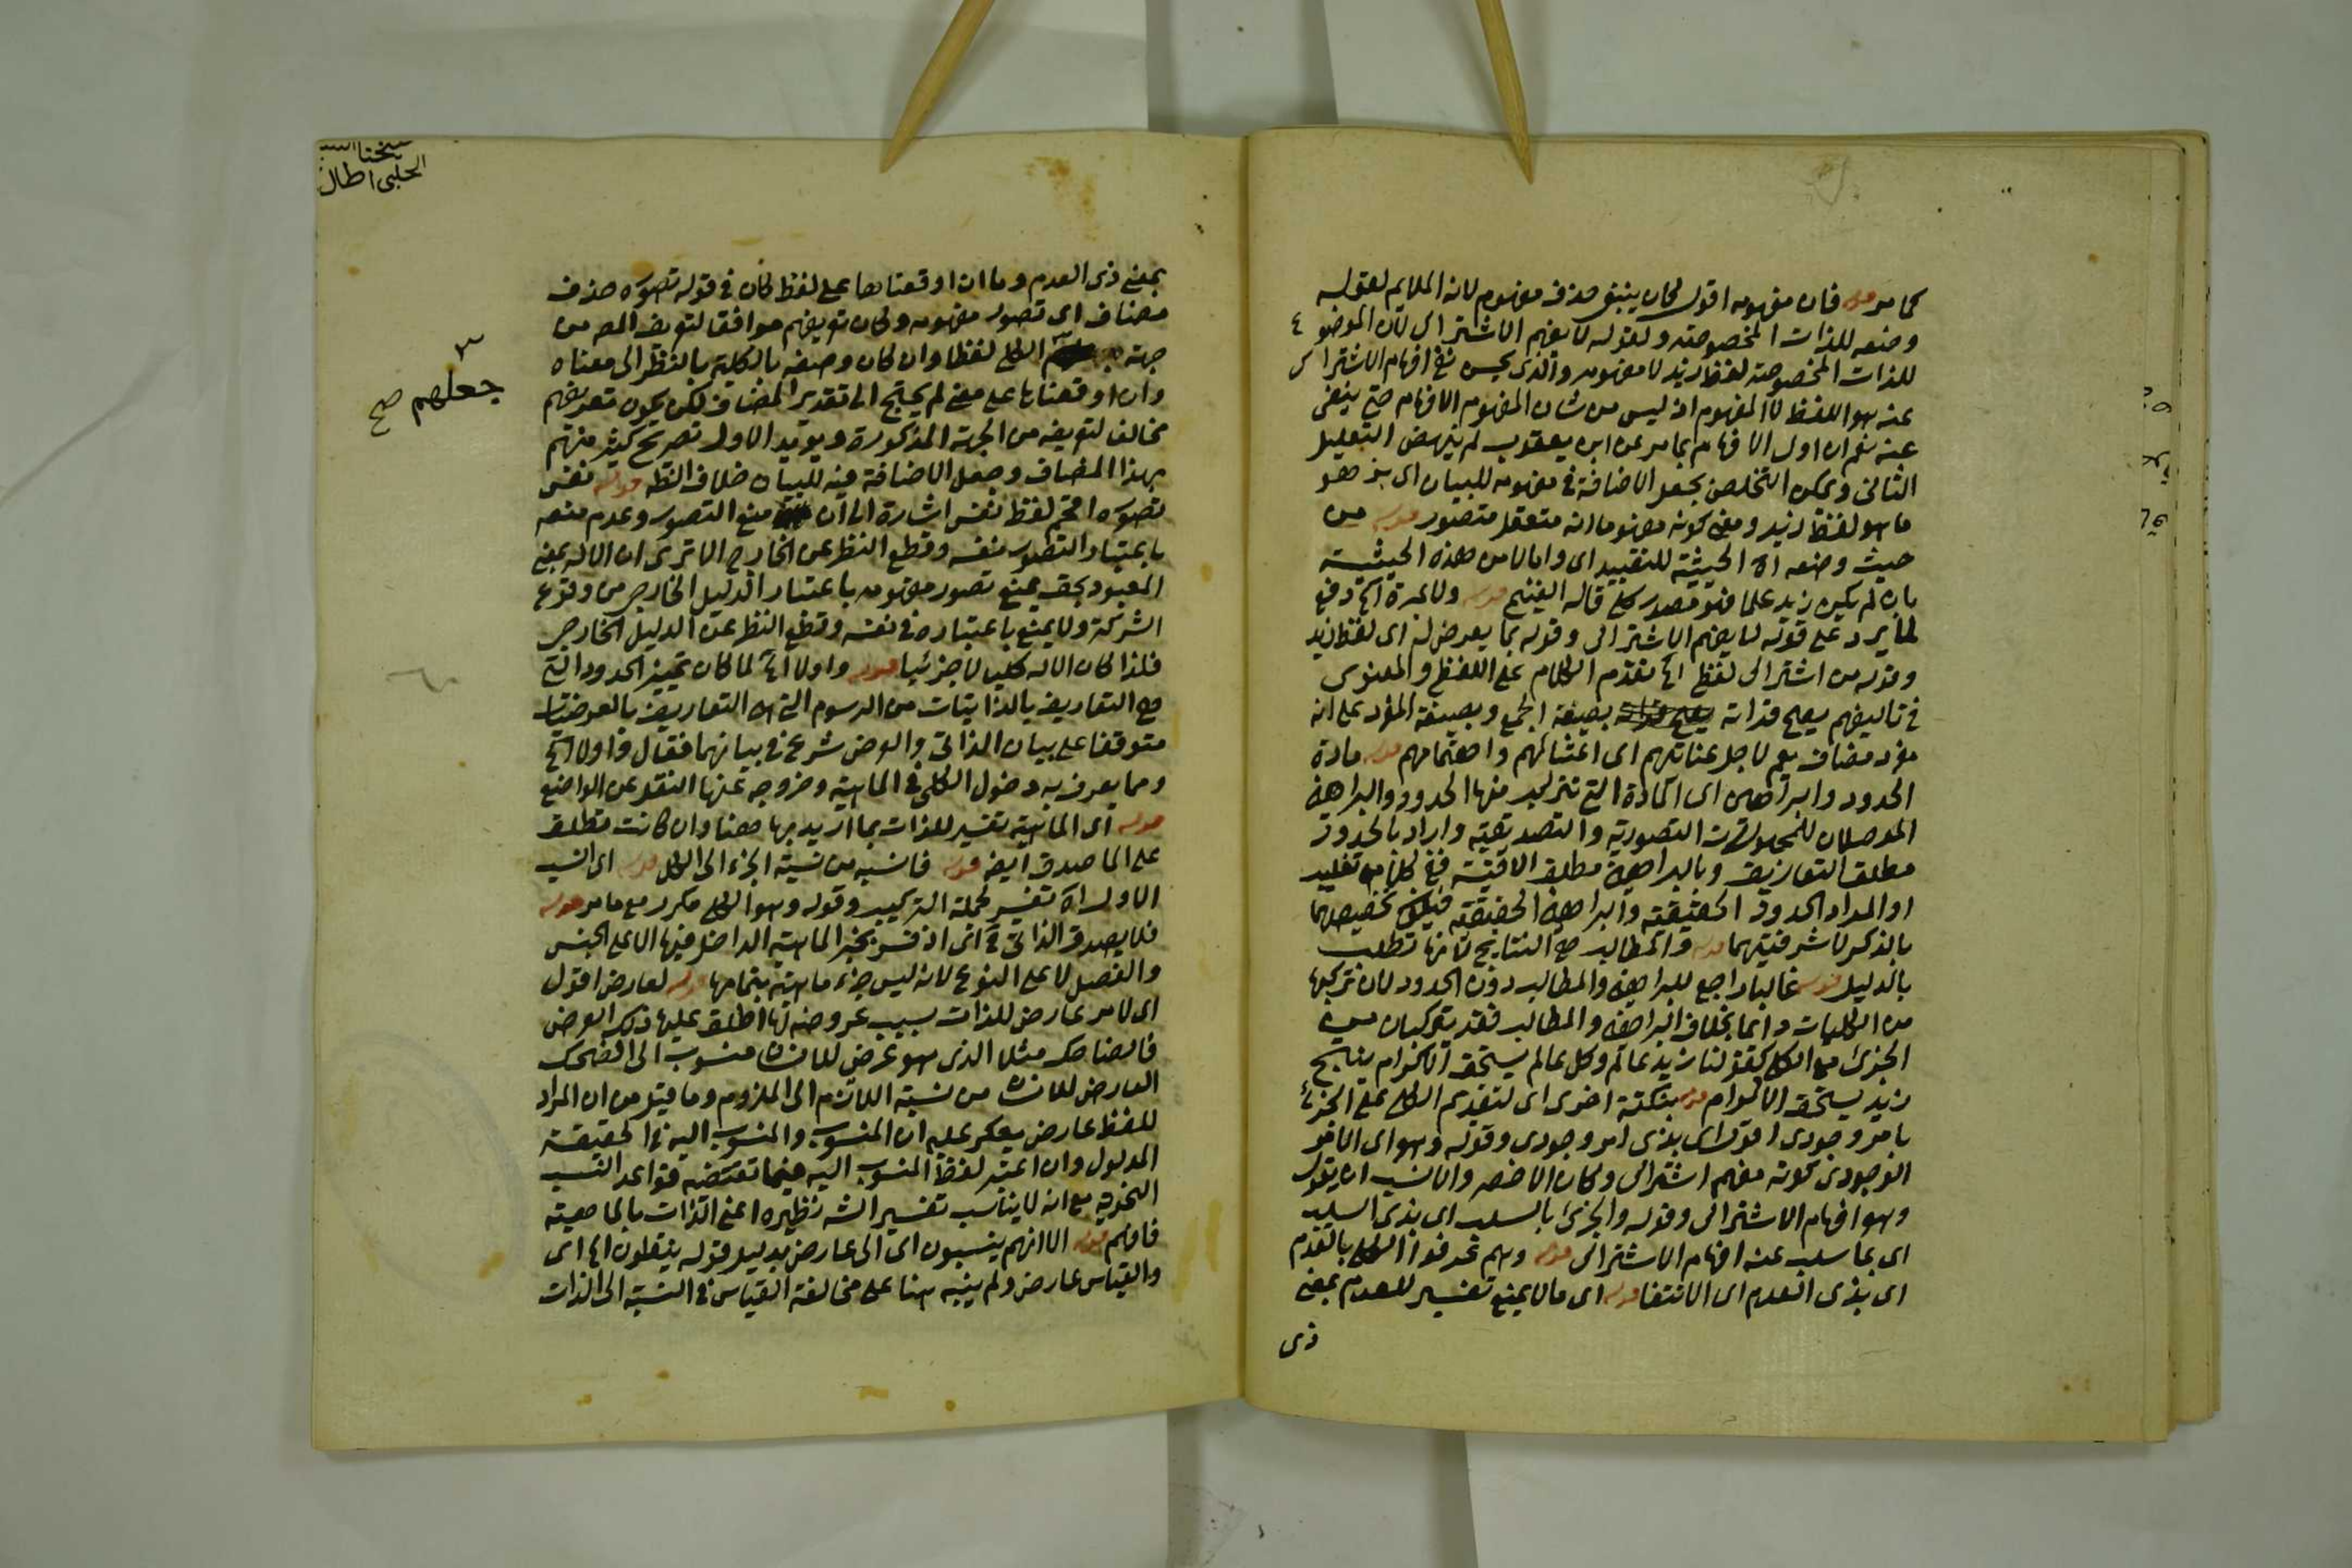 كما مر قوله فان مفهومه اقول كان ينبغى حذف مفهوم لانه الملايم لقوله
وضعه للذات المخصوصة ولقوله لا يفهم الاشتراك لان الموضوع
للذات المخصوصة لفظ زيد لا مفهومه والذى يحسن نفى افهام الاشتراك
عنه هو اللفظ لا المفهوم اذ ليس من شان المفهوم الافهام حتى ينفى
عنه نعم ان اول الافهام بما مر عن ابن يعقوب لم ينهض التعليل
الثانى ويمكن التخلص بجعل الاضافة فى مفهومه للبيان اى بمفهوم هو
ما هو لفظ زيد ومعنى كونه مفهوما انه متعقل متصور قوله من
حيث وضعه اه الحيثية للتقييد اى واما لا من هذه الحيثية
بان لم يكن زيد علما فهو مصدر كلى قاله الغنيمى قوله ولا عبرة اه دفع
لما يرد على قوله لا يفهم الاشتراك وقوله بما يعرض له اى لفظ زيد
وقوله من اشتراك لفظ اه تقدم الكلام على اللفظى والمعنوى
فى تاليفهم يصح قراته بصيغة الجمع وبصيغة المفرد على انه
مفرد مضاف يعم لاجل عنايتهم اى اعتنائهم واهتمامهم قوله مادة
الحدود والبراهين اى المادة التى تتركب منها الحدود والبراهين
الموصلان للمجهولات التصورية والتصديقية واراد بالحدود
مطلق التعاريف وبالبراهين مطلق الاقيسة ففى كل منهما تغليب
او المراد الحدود الحقيقية والبراهين الحقيقية فيكون تخصيصهما
بالذكر لاشرفيتهما قوله والمطالب هى النتايج لانها تطلب
بالدليل قوله غالبا راجع للبراهين والمطالب دون الحدود لان تركبها
من الكليات دائما بخلاف البراهين والمطالب فقد يتركبان من
الجزئى مع الكلى كقولنا زيد عالم وكل عالم يستحق الاكرام ينتج
زيد يستحق الاكرام قوله بنكتة اخرى اى لتقديم الكلى على الجزئى
بامر وجودى اقول اى بذى امر وجودى وقوله وهو اى الامر
الوجودى كونه مفهم اشتراك وكان الاخصر والانسب ان يقول
وهو افهام الاشتراك وقوله والجزئى بالسلب اى بذى السلب
اى بما سلب عنه افهام الاشتراك قوله وهم عرفوا الكلى بالعدم
اى بذى العدم اى الانتفا قوله اى ما لا يمنع تفسير للعدم بمعنى
ذى
الحلبى اطال
بمعنى ذى العدم وما ان اوقعناها على لفظ كان فى قوله تصوره حذف
مضاف اى تصور مفهومه وكان تعريفهم موافقا لتعريف المص من
جهة الكلى لفظا وان كان وصفه بالكلية بالنظر الى معناه
جعلهم صح
وان اوقعناها على معنى لم يحتج الى تقدير المضاف لكن يكون تعريفهم
مخالف لتعريفه من الجهة المذكورة ويؤيد الاول تصريح كثير منهم
بهذا المضاف وجعل الاضافة فيه للبيان خلاف الظه قوله نفس
تصوره اقحم لفظ نفس اشارة الى ان منع التصور وعدم منعه
باعتبار التصور نفسه وقطع النظر عن الخارج الا ترى ان الاله بمعنى
المعبود بحق يمنع تصور مفهومه باعتبار الدليل الخارجى من وقوع
الشركة ولا يمنع باعتباره فى نفسه وقطع النظر عن الدليل الخارجى
فلذا كان الاله كليا لا جزئيا قوله واولا اه لما كان تمييز الحدود التى
هى التعاريف بالذاتيات من الرسوم التى هى التعاريف بالعرضيات
متوقفا على بيان الذاتى والعرضى شرع فى بيانهما فقال واولا اه
ومما يعرف به دخول الكلى فى الماهية وخروجه عنها النقل عن الواضع
قوله اى الماهية تفسير للذات بما اريد بها هنا وان كانت تطلق
على الماصدق ايضه قوله فانسبه من نسبة الجزء الى الكل قوله اى انسب
الاول اه تفسير لجملة التركيب وقوله وهو الكلى مكرر مع ما مر قوله
فلا يصدق الذاتى اذ فسر بجزء الماهية الداخل فيها الا على الجنس
والفصل لا على النوع لانه ليس جزء ماهية بتمامها قوله لعارض اقول
اى لامر عارض للذات بسبب عروضه لها اطلق عليها ذلك العرض
فالضاحك مثلا الذى هو عرض للانسان منسوب الى الضحك
العارض للانسان من نسبة اللازم الى الملزوم وما قيل من ان المراد
للفظ عارض يعكر عليه ان المنسوب والمنسوب اليه فى الحقيقة
المدلول وان اعتبر لفظ المنسوب اليه فيما تقتضيه قواعد النسب
النحوية مع انه لا يناسب تفسير الشه نظيره اعنى الذات بالماهية
فافهم قوله الا انهم ينسبون اى الى عارض بدليل قوله يتقلون اه اى
والقياس عارض ولم ينبه هنا على مخالفة القياس فى النسبة الى الذات